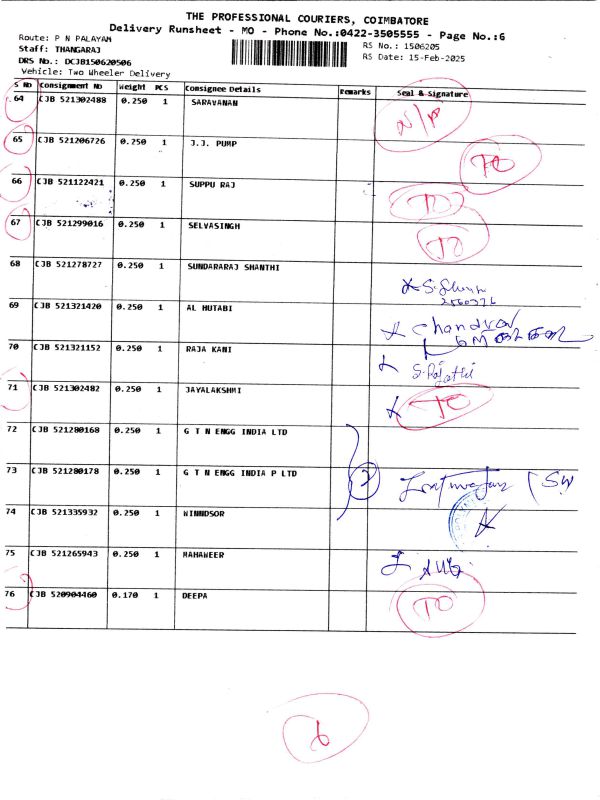 THE PROFESSIONAL COURIERS, COIMBATORE
Delivery Runsheet - MO - Phone No.:0422-3505555 - Page No.:6
Route: P N PALAYAM
RS No.: 1506205
Staff: THANGARAJ
RS Date: 15-Feb-2025
DRS No.: DCJB150620506
Vehicle: Two Wheeler Delivery
S No Consignment No Weight PCS Consignee Details Remarks Seal & Signature
64 CJB 521302488 0.250 1 SARAVANAN N/P
65 CJB 521206726 0.250 1 J.J. PUMP TO
66 CJB 521122421 0.250 1 SUPPU RAJ TO
67 CJB 521299016 0.250 1 SELVASINGH TO
68 CJB 521278727 0.250 1 SUNDARARAJ SHANTHI
69 CJB 521321420 0.250 1 AL HUTABI Chandran
70 CJB 521321152 0.250 1 RAJA KANI
71 CJB 521302482 0.250 1 JAYALAKSHMI TO
72 CJB 521280168 0.250 1 G T N ENGG INDIA LTD
73 CJB 521280178 0.250 1 G T N ENGG INDIA P LTD
74 CJB 521335932 0.250 1 WINNDSOR
75 CJB 521265943 0.250 1 MAHAWEER
76 CJB 520904460 0.170 1 DEEPA TO